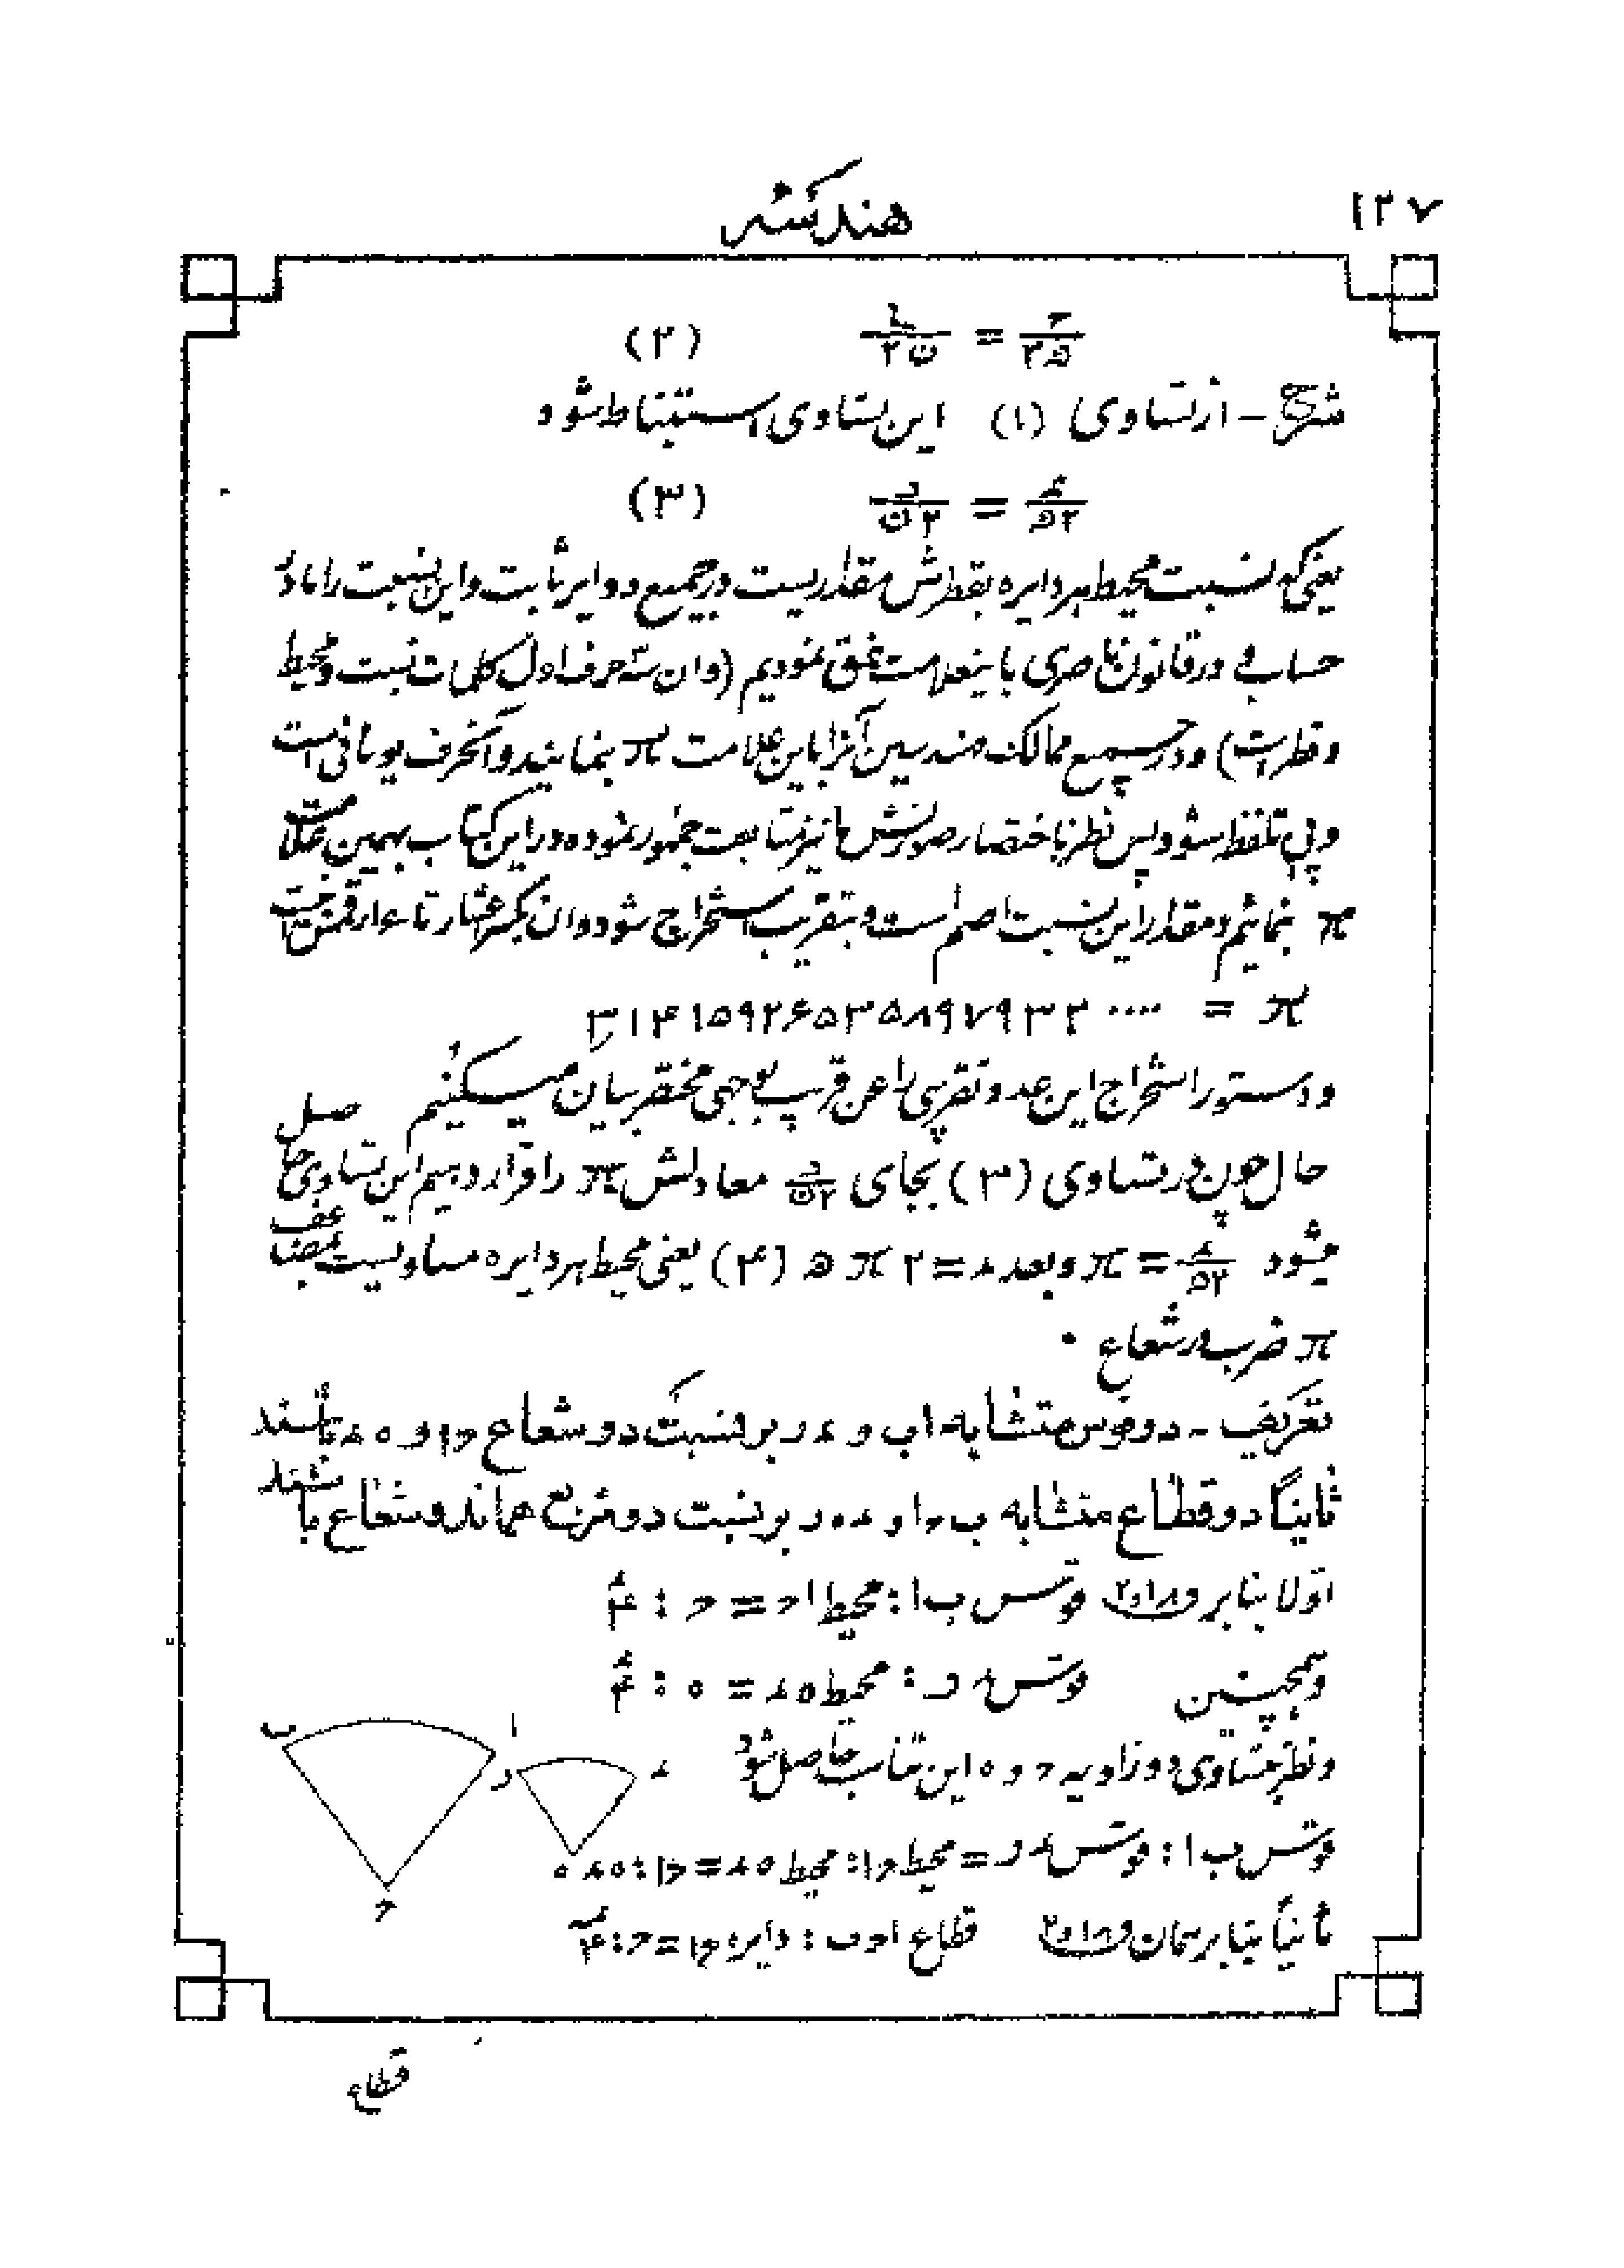 ۱۲۷
هندسه
(۲)
شرح - از تساوی (۱) این تساوی استنباط شود
(۳)
یعنی که نسبت محیط هر دایره بقطرش مقداریست در جمیع دوایر ثابت و این نسبت را ما در
حسابی در قانون ناصری باینعلامت نمق نمودیم (و ان سه حرف اول کلمات نسبت و محیط
و قطر است) و در جمیع ممالک مهندسین آنرا باین علامت π بنمایند و آنحرف یونانی است
و پی تلفظ شود پس نظر باختصار صورتش ما نیز متابعت جمهور نموده در این کتاب بهمین علامت
π بنمائیم و مقدار این نسبت اصم است و بتقریب استخراج شود و ان بکسر اعشار تا
π = ۳٫۱۴۱۵۹۲۶۵۳۵۸۹۷۹۳۲ ....
و دستور استخراج این عدد تقریبی را عن قریب بوجهی مختصر بیان میکنیم
حال چون در تساوی (۳) بجای معادلش π را قرار دهیم این تساوی حاصل
میشود = π و بعد ء = ۲ π ه (۴) یعنی محیط هر دایره مساویست بضعف
π ضرب در شعاع ٠
تعریف - دو قوس متشابه اب و ء ر بر نسبت دو شعاع ح ا و ه ء باشند
ثانیاً دو قطاع متشابه ب ح ا و ء ه ر بر نسبت دو مربع همان دو شعاع باشند
اولا بنا بر قوس ب ا : محیط ا ح = ح : ۴
و همچنین قوس ء ر : محیط ه ء = ه : ۴
و نظر بتساوی دو زاویه ح و ه این تناسب حاصل شود
قوس ب ا : قوس ء ر = محیط ح ا : محیط ه ء = ح ا : ه ء
ثانیاً بنا بر همان قطاع ا ح ب : دایره ح ا = ح : ۴
ب
ا
ر
ء
ه
ح
قطاع